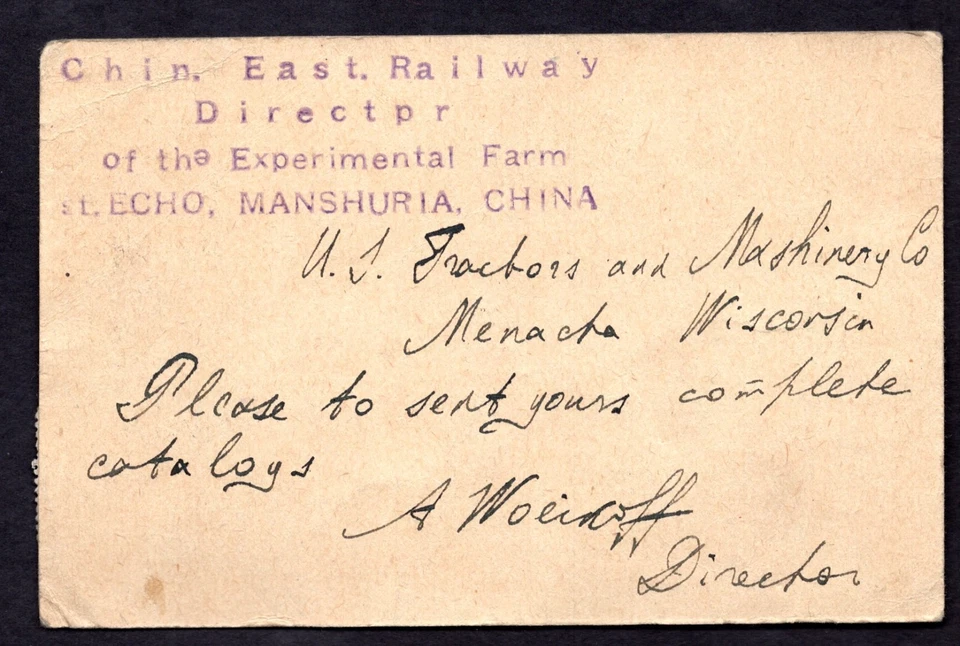 Chin. East. Railway
Directpr
of the Experimental Farm
st. ECHO, MANSHURIA, CHINA
U. S. Tractors and Mashinery Co
Menacha Wisconsin
Please to sent yours complete
catalogs
A Woeikoff
Director